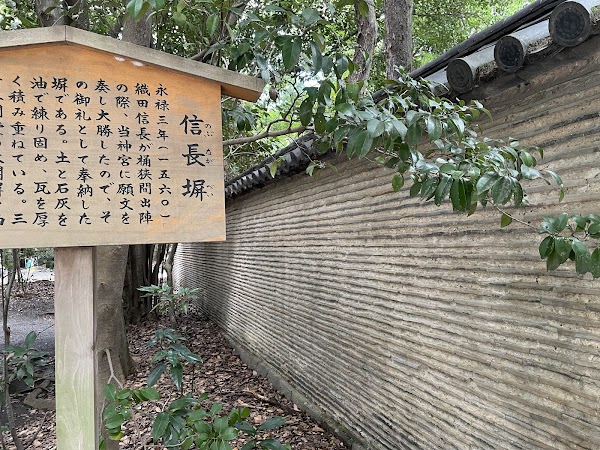 信長塀
のぶ なが べい
永禄三年（一五六〇）
織田信長が桶狭間出陣
の際、当神宮に願文を
奏し大勝したので、そ
の御礼として奉納した
塀である。土と石灰を
油で練り固め、瓦を厚
く積み重ねている。三